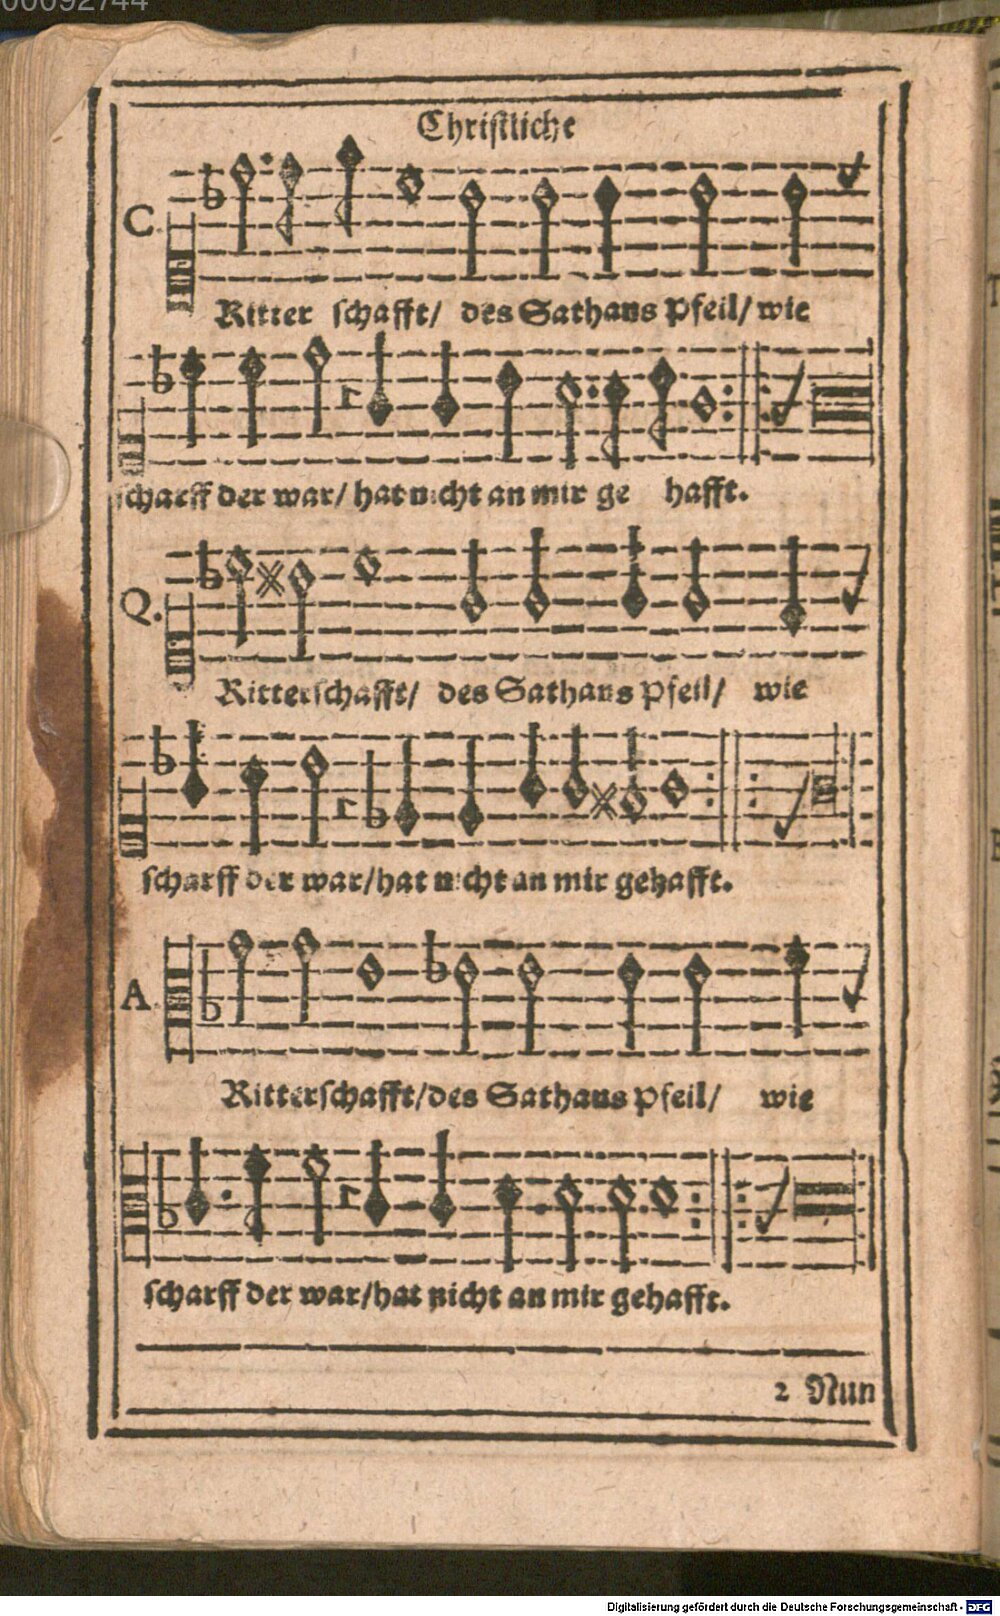 00092744
Christliche
C.
Ritter schafft/ des Sathans Pfeil/ wie
scharff der war/ hat nicht an mir ge hafft.
Q.
Ritterschafft/ des Sathans Pfeil/ wie
scharff der war/hat nicht an mir gehafft.
A.
Ritterschafft/des Sathans Pfeil/ wie
scharff der war/hat nicht an mir gehafft.
2 Nun
Digitalisierung gefördert durch die Deutsche Forschungsgemeinschaft - DFG